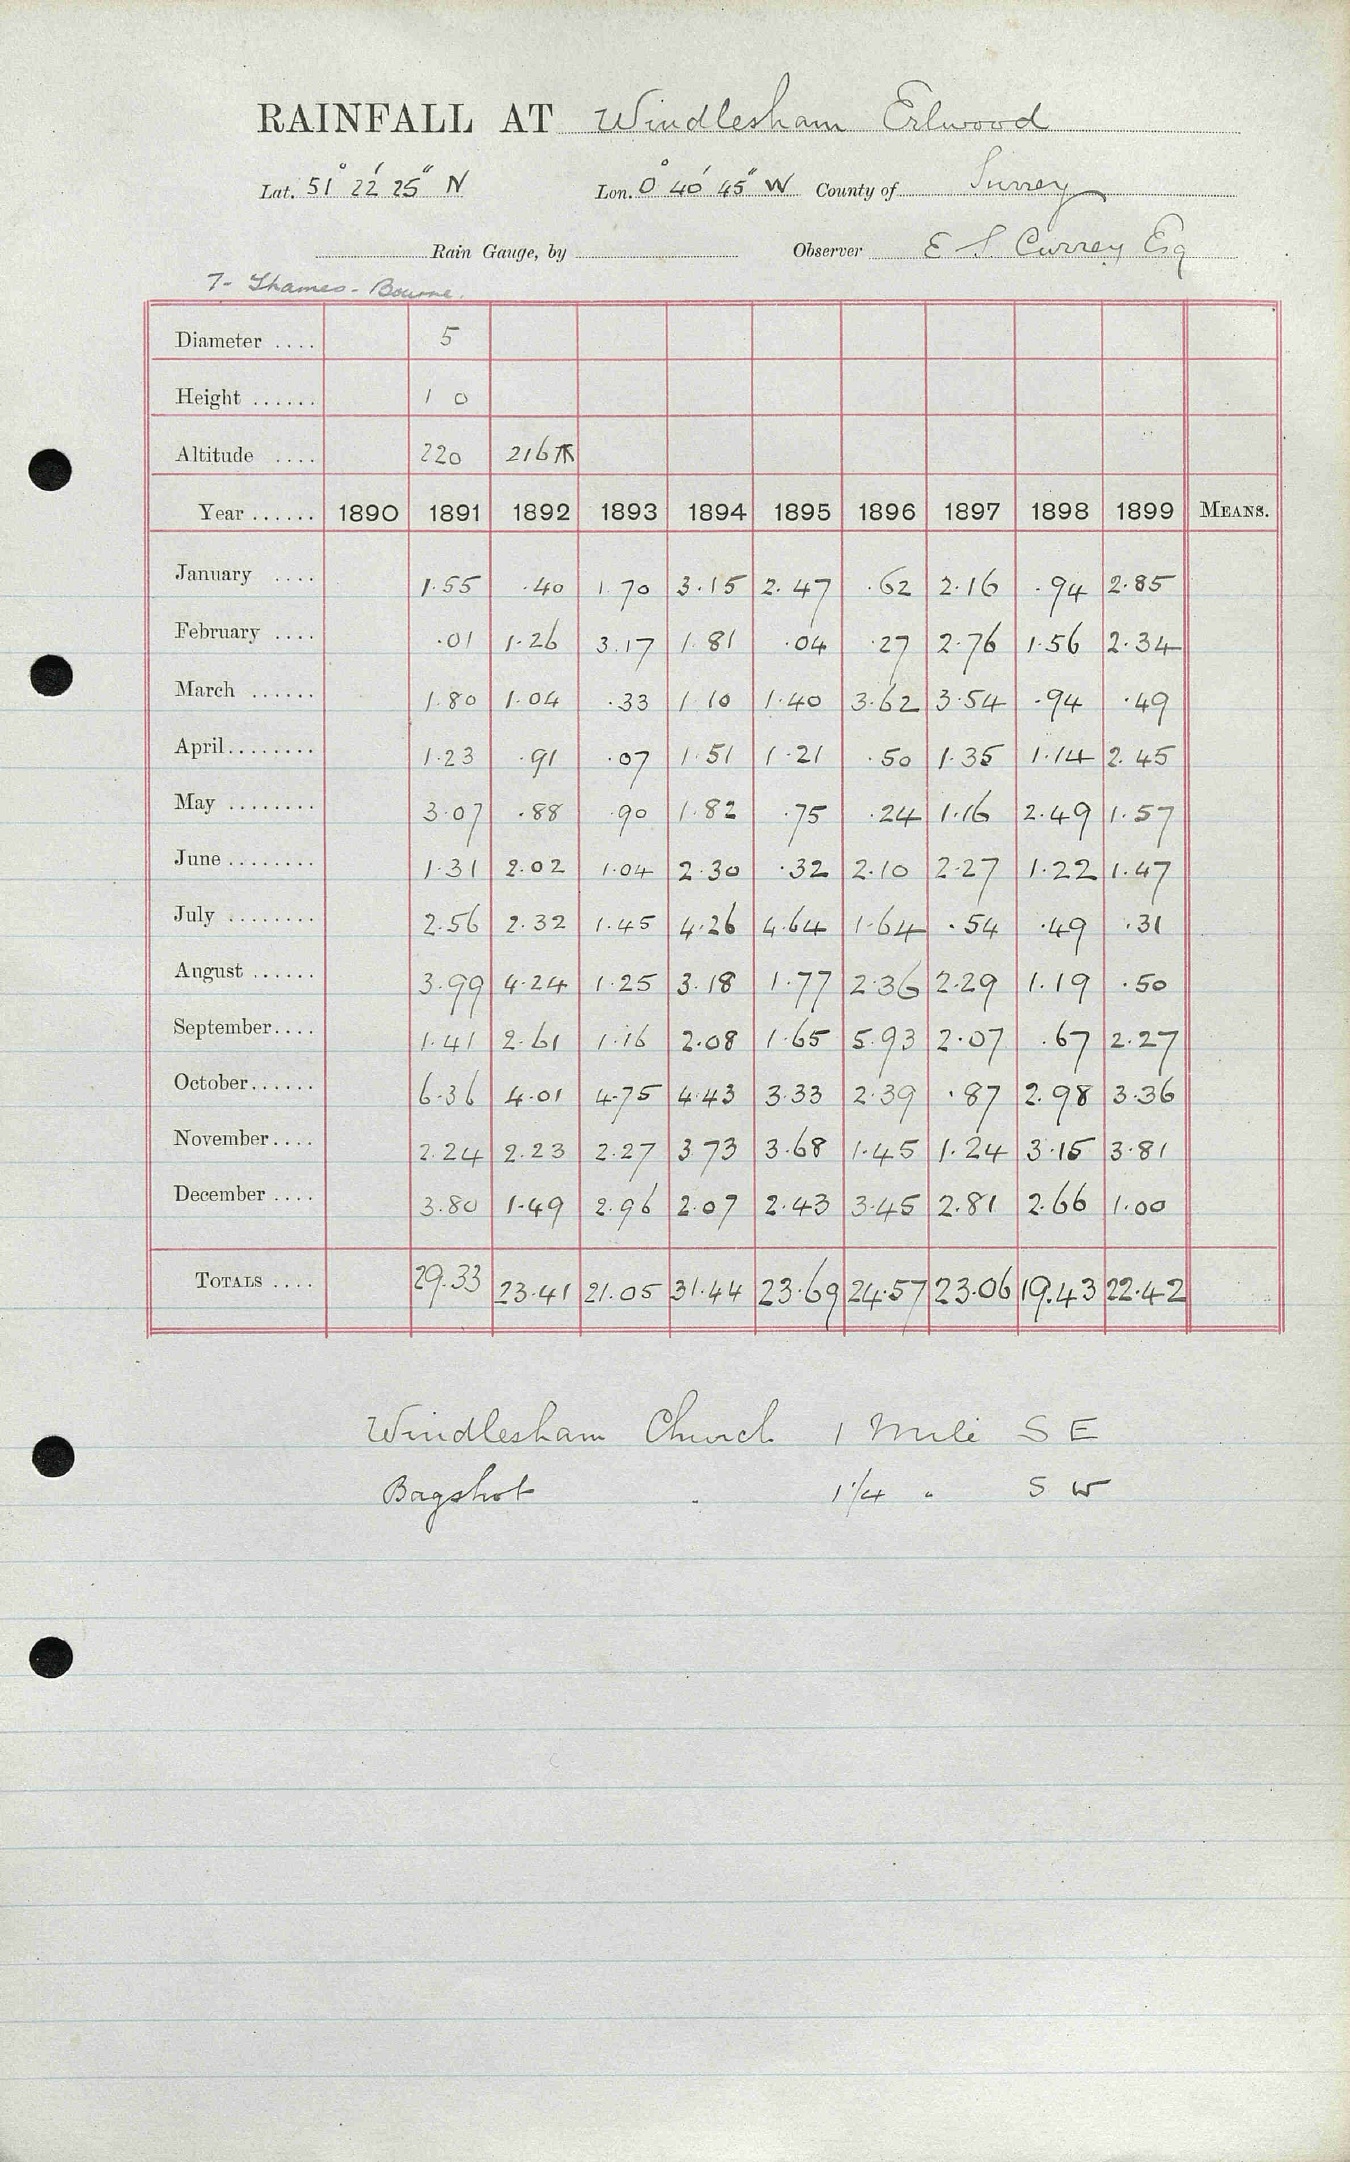 RAINFALL AT Windlesham Erlwood
Lat. 51° 22' 25" N Lon. 0° 40' 45" W County of Surrey
Rain Gauge, by Observer E S Currey Esq
T- Thames - Bourne.
Diameter .... 5
Height ...... 1 0
Altitude .... 220 216
Year ...... 1890 1891 1892 1893 1894 1895 1896 1897 1898 1899 MEANS.
January .... 1.55 .40 1.70 3.15 2.47 .62 2.16 .94 2.85
February .... .01 1.26 3.17 1.81 .04 .27 2.76 1.56 2.34
March ...... 1.80 1.04 .33 1 10 1.40 3.62 3.54 .94 .49
April........ 1.23 .91 .07 1.51 1.21 .50 1.35 1.14 2.45
May ........ 3.07 .88 .90 1.82 .75 .24 1.16 2.49 1.57
June ........ 1.31 2.02 1.04 2.30 .32 2.10 2.27 1.22 1.47
July ........ 2.56 2.32 1.45 4.26 4.64 1.64 .54 .49 .31
August ...... 3.99 4.24 1.25 3.18 1.77 2.36 2.29 1.19 .50
September.... 1.41 2.61 1.16 2.08 1.65 5.93 2.07 .67 2.27
October...... 6.36 4.01 4.75 4.43 3.33 2.39 .87 2.98 3.36
November.... 2.24 2.23 2.27 3 73 3.68 1.45 1.24 3.15 3.81
December .... 3.80 1.49 2.96 2.07 2.43 3.45 2.81 2.66 1.00
TOTALS .... 29.33 23.41 21.05 31.44 23.69 24.57 23.06 19.43 22.42
Windlesham Church 1 Mile S E
Bagshot " 1 1/4 " S W